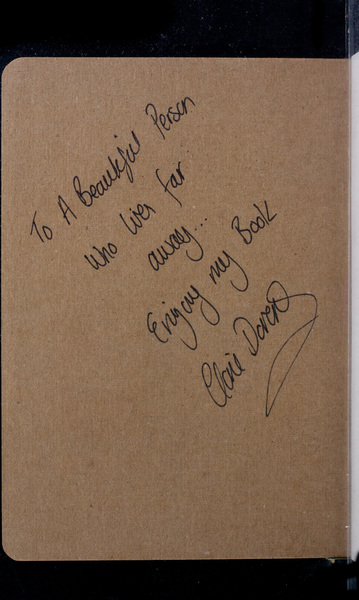 To A Beautiful Person
Who lives far
away...
Enjoy my Book
Claire